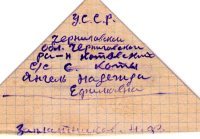 У.С.С.Р.
Черниговская
обл. Черниговский
ра-н Котовский
с/с с. Коты
Янгель Надежда
Ефимовна